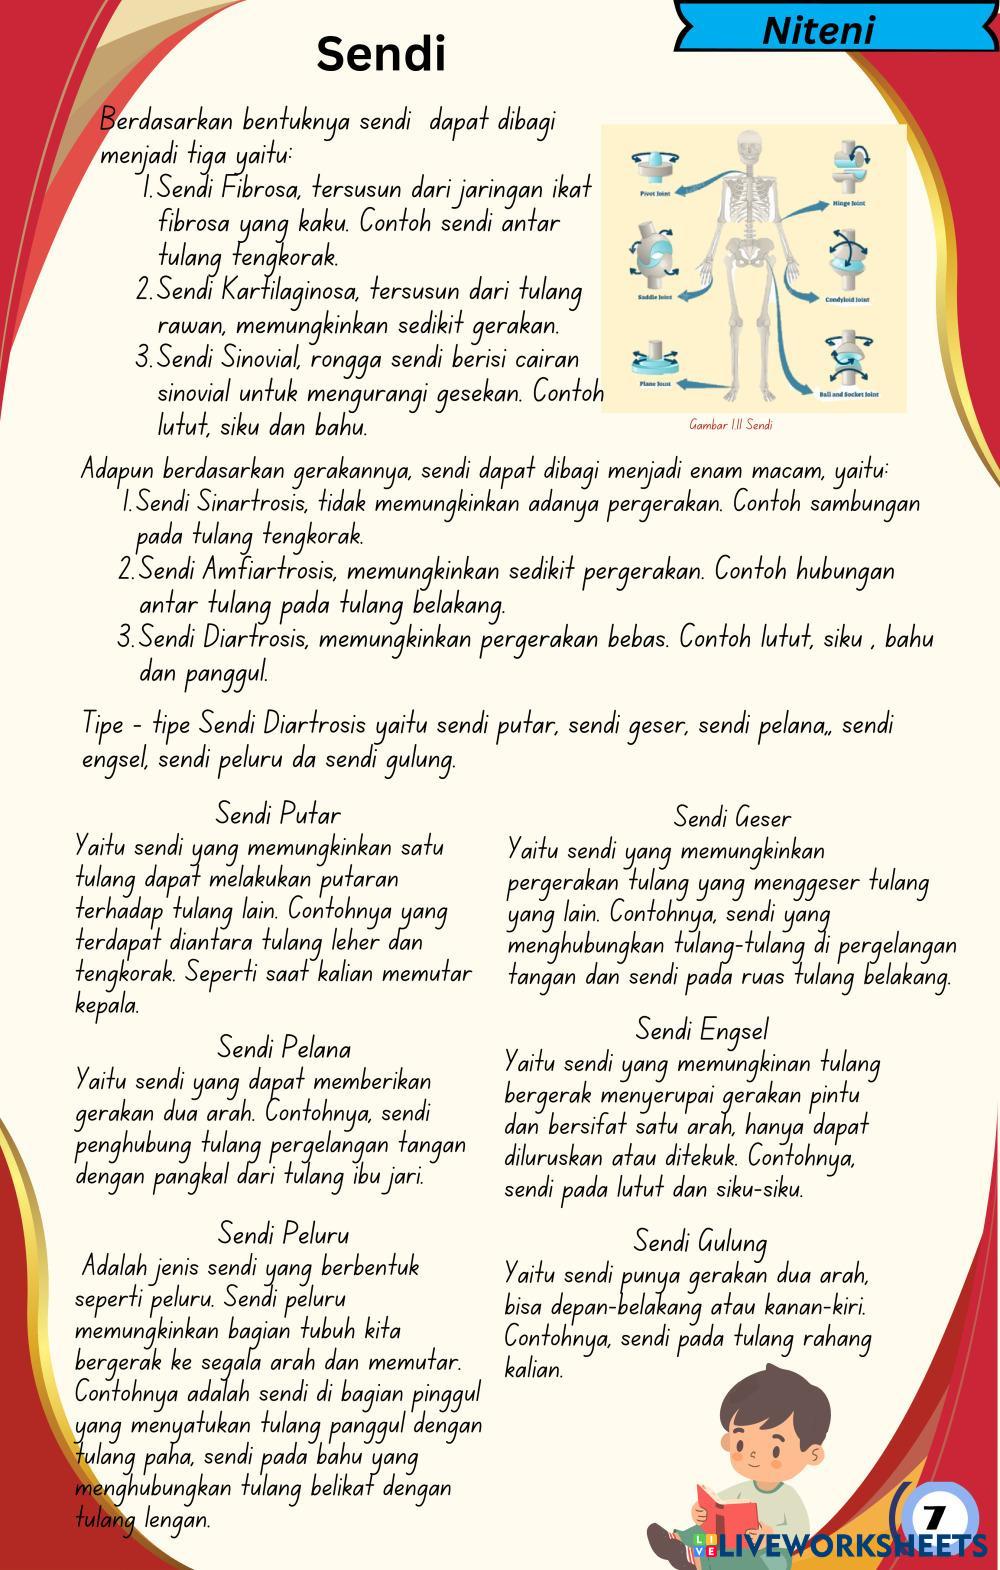 Niteni
Sendi
Berdasarkan bentuknya sendi dapat dibagi
menjadi tiga yaitu:
1. Sendi Fibrosa, tersusun dari jaringan ikat
fibrosa yang kaku. Contoh sendi antar
tulang tengkorak.
2. Sendi Kartilaginosa, tersusun dari tulang
rawan, memungkinkan sedikit gerakan.
3. Sendi Sinovial, rongga sendi berisi cairan
sinovial untuk mengurangi gesekan. Contoh
lutut, siku dan bahu.
Pivot Joint
Hinge Joint
Saddle Joint
Condyloid Joint
Plane Joint
Ball and Socket Joint
Gambar 1.11 Sendi
Adapun berdasarkan gerakannya, sendi dapat dibagi menjadi enam macam, yaitu:
1. Sendi Sinartrosis, tidak memungkinkan adanya pergerakan. Contoh sambungan
pada tulang tengkorak.
2. Sendi Amfiartrosis, memungkinkan sedikit pergerakan. Contoh hubungan
antar tulang pada tulang belakang.
3. Sendi Diartrosis, memungkinkan pergerakan bebas. Contoh lutut, siku , bahu
dan panggul.
Tipe - tipe Sendi Diartrosis yaitu sendi putar, sendi geser, sendi pelana,, sendi
engsel, sendi peluru da sendi gulung.
Sendi Putar
Yaitu sendi yang memungkinkan satu
tulang dapat melakukan putaran
terhadap tulang lain. Contohnya yang
terdapat diantara tulang leher dan
tengkorak. Seperti saat kalian memutar
kepala.
Sendi Pelana
Yaitu sendi yang dapat memberikan
gerakan dua arah. Contohnya, sendi
penghubung tulang pergelangan tangan
dengan pangkal dari tulang ibu jari.
Sendi Peluru
Adalah jenis sendi yang berbentuk
seperti peluru. Sendi peluru
memungkinkan bagian tubuh kita
bergerak ke segala arah dan memutar.
Contohnya adalah sendi di bagian pinggul
yang menyatukan tulang panggul dengan
tulang paha, sendi pada bahu yang
menghubungkan tulang belikat dengan
tulang lengan.
Sendi Geser
Yaitu sendi yang memungkinkan
pergerakan tulang yang menggeser tulang
yang lain. Contohnya, sendi yang
menghubungkan tulang-tulang di pergelangan
tangan dan sendi pada ruas tulang belakang.
Sendi Engsel
Yaitu sendi yang memungkinan tulang
bergerak menyerupai gerakan pintu
dan bersifat satu arah, hanya dapat
diluruskan atau ditekuk. Contohnya,
sendi pada lutut dan siku-siku.
Sendi Gulung
Yaitu sendi punya gerakan dua arah,
bisa depan-belakang atau kanan-kiri.
Contohnya, sendi pada tulang rahang
kalian.
7
LIVE LIVEWORKSHEETS